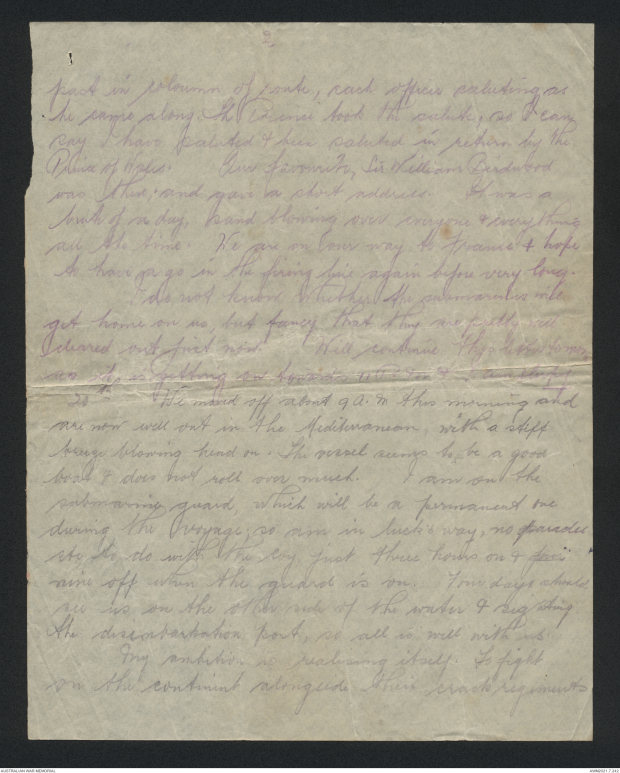 2
past in coloumn of route, each officer saluting as
he came along. The Prince took the salute, so I can
say I have saluted & been saluted in return by the
Prince of Wales. Our favourite, Sir William Birdwood
was there, and gave a short address. It was a
brute of a day, sand blowing over everyone & everything
all the time. We are on our way to France & hope
to have a go in the firing line again before very long.
I do not know whether the submarines will
get home on us, but fancy that they are pretty well
cleared out just now. Will continue this
as it is getting on towards
20th We moved off about 9 a.m this morning and
are now well out in the Mediterranean, with a stiff
breeze blowing head on. The vessel seems to be a good
boat & does not roll over much. I am on the
submarine guard, which will be a permanent one
during the voyage, so am in luck's way, no parades
etc to do with the coy just three hours on &
nine off when the guard is on. Four days should
see us on the other side of the water & sighting
the disembarkation port, so all is well with us.
My ambition is realising itself. To fight
on the continent alongside their crack regiments
AUSTRALIAN WAR MEMORIAL
AWM2021.7.242